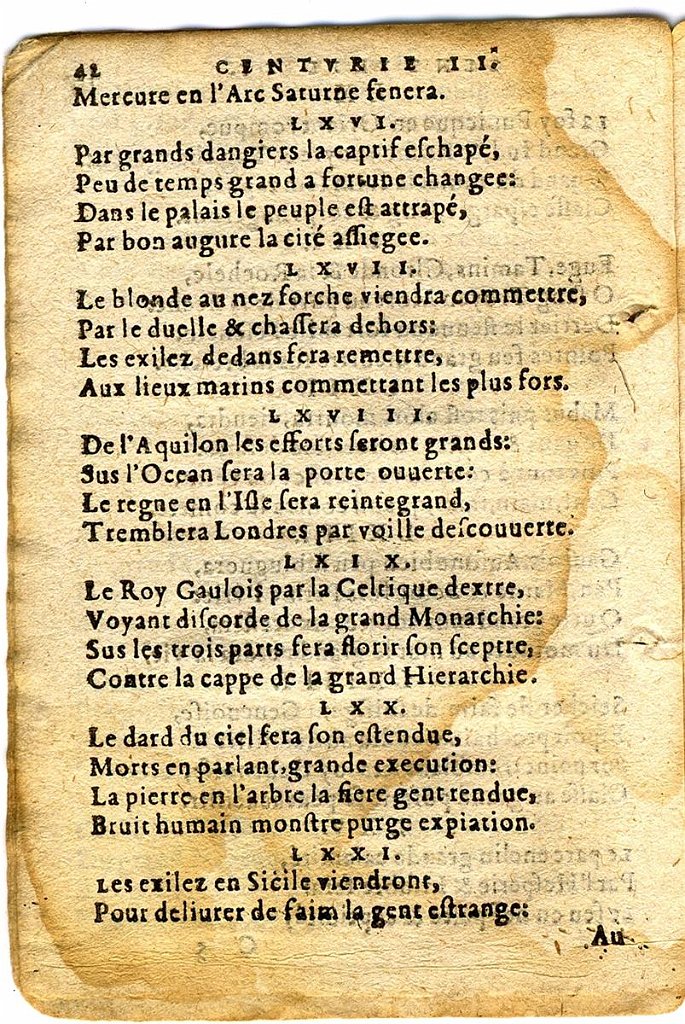 42 CENTVRIE II.
Mercure en l'Arc Saturne fenera.
LXVI.
Par grands dangiers la captif eſchapé,
Peu de temps grand a fortune changee:
Dans le palais le peuple eſt attrapé,
Par bon augure la cité aſſiegee.
LXVII.
Le blonde au nez forche viendra commettre,
Par le duelle & chaſſera dehors:
Les exilez dedans fera remettre,
Aux lieux marins commettant les plus fors.
LXVIII.
De l'Aquilon les efforts ſeront grands:
Sus l'Ocean ſera la porte ouuerte:
Le regne en l'Iſle ſera reintegrand,
Tremblera Londres par voille deſcouuerte.
LXIX.
Le Roy Gaulois par la Celtique dextre,
Voyant diſcorde de la grand Monarchie:
Sus les trois parts fera florir ſon ſceptre,
Contre la cappe de la grand Hierarchie.
LXX.
Le dard du ciel fera ſon eſtendue,
Morts en parlant, grande execution:
La pierre en l'arbre la fiere gent rendue,
Bruit humain monſtre purge expiation.
LXXI.
Les exilez en Sicile viendront,
Pour deliurer de faim la gent eſtrange:
Au